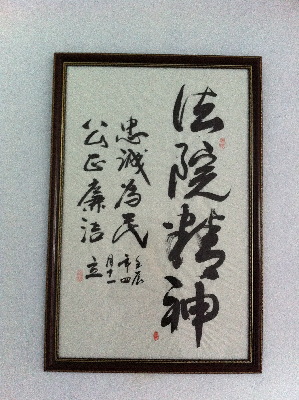 法院精神
忠诚為民
公正廉洁
壬辰
年四
月十一
立